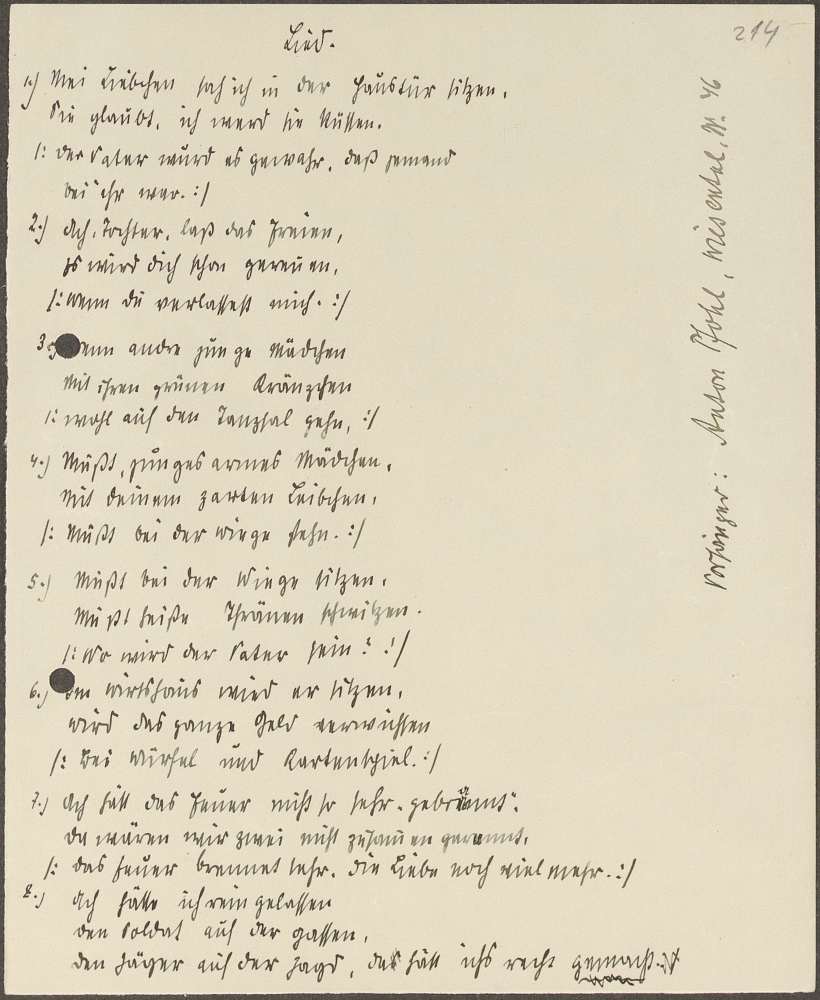 214
Lied.
1.) Mei Liebchen sah ich in der Haustür sitzen,
Sie glaubt, ich werd sie küssen.
/: der Vater wurd es gewahr, daß jemand
bei ihr war. :/
2.) Ach, Tochter, laß das Freien,
Es wird dich schon gereuen,
/: Wenn du verlassest mich. :/
3.) Wenn andre junge Mädchen
Mit ihren grünen Kränzchen
/: wohl auf den Tanzsal gehn, :/
4.) Mußt, junges armes Mädchen,
Mit deinem zarten Leibchen,
/: Mußt bei der Wiege stehn. :/
5.) Mußt bei der Wiege sitzen,
Mußt heiße Thränen schwitzen.
/: Wo wird der Vater sein? :/
6.) Im Wirtshaus wird er sitzen,
Wird das ganze Geld verwichsen
/: Bei Würfel und Kartenspiel. :/
7.) Ach hätt das Feuer nicht so sehr gebrannt,
da wären wir zwei nicht zusammen gerannt,
/: das Feuer brennet sehr, die Liebe noch viel mehr. :/
8.) Ach hätte ich rein gelassen
den Soldat auf der Gassen,
den Jäger auf der Jagd, das hätt ichs recht gemacht.
Vorsänger: Anton Pohl, Wiesental, Nr. 46